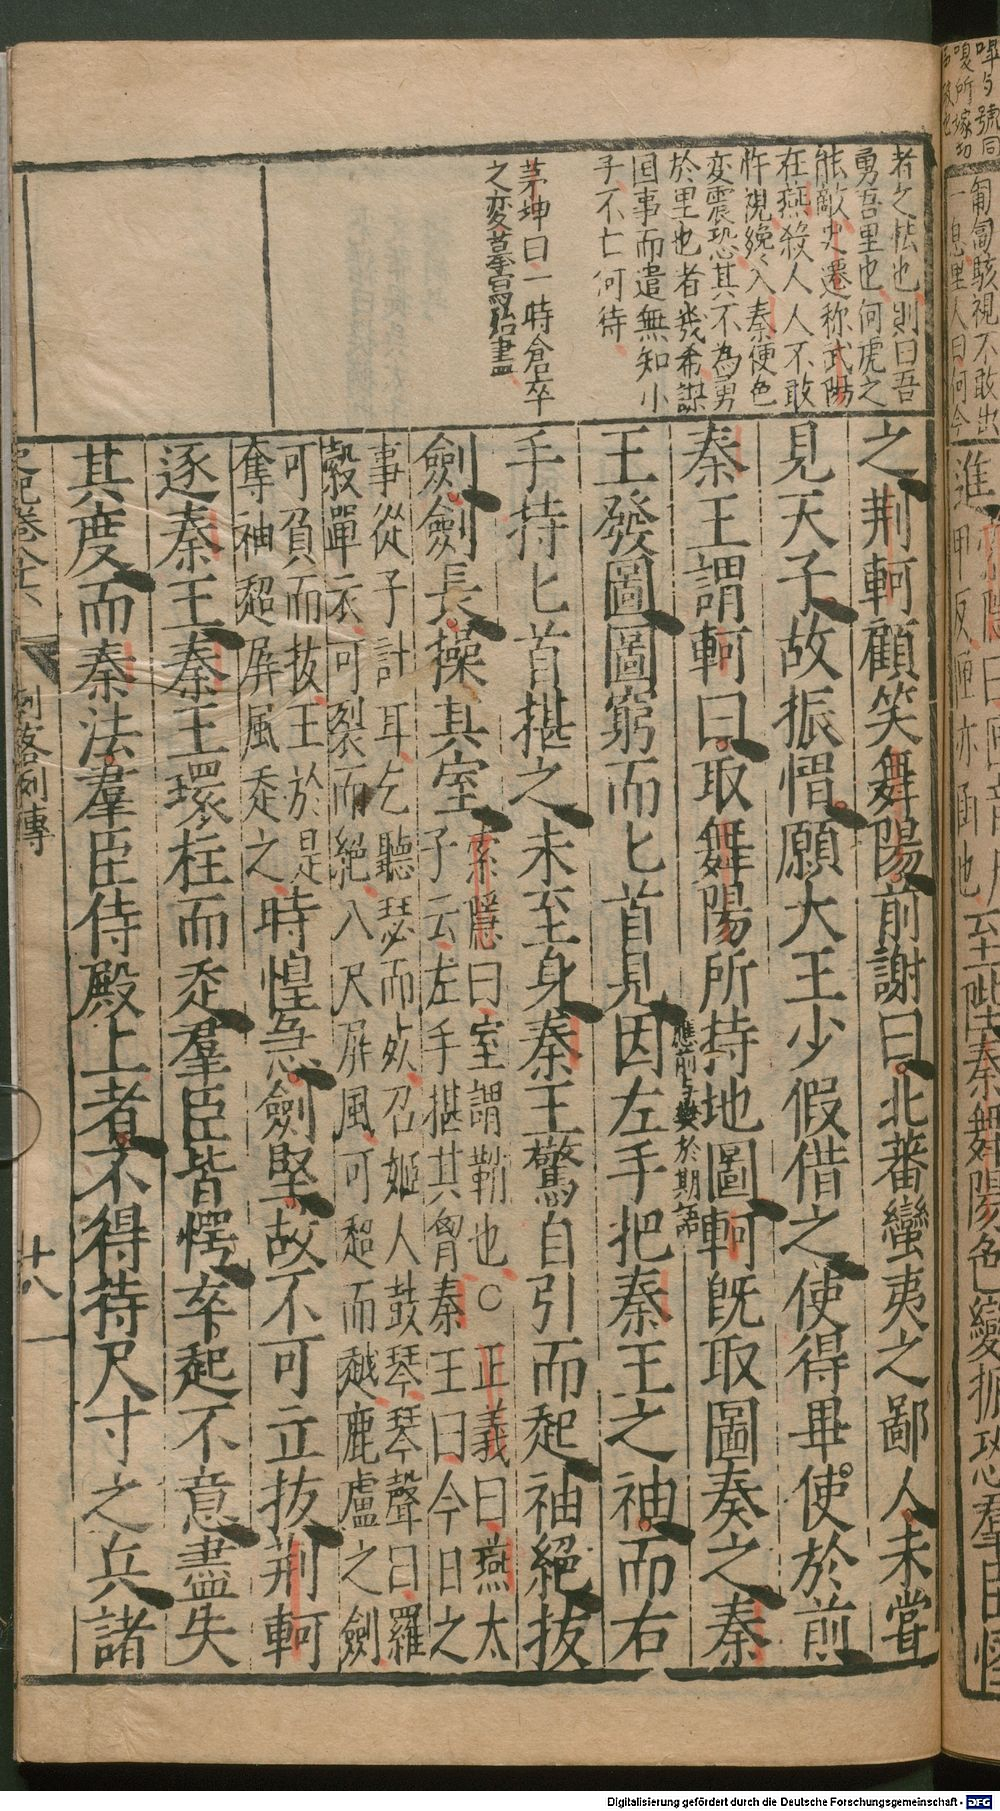 嘷与號同
嗄所嫁切
匍匐駭視不敢出
一息里人曰何今
者之怯也則曰吾
勇吾里也何虎之
能敵史遷称武陽
在燕殺人人不敢
忤視纔入秦便色
変震恐其不為勇
於里也者幾希謀
囯事而遣無知小
子不亡何待
茅坤曰一時倉卒
之変摹寫如畫
至陛秦舞陽色變振恐羣臣怪
之荆軻顧笑舞陽前謝曰北蕃蠻夷之鄙人未嘗
見天子故振慴願大王少假借之使得畢使於前
秦王謂軻曰取舞陽所持地圖軻既取圖奏之秦
應前與樊於期語
王發圖圖窮而匕首見因左手把秦王之袖而右
手持匕首揕之未至身秦王驚自引而起袖絕拔
劍劍長操其室
索隱曰室謂鞘也○正義曰燕太
子云左手揕其胷秦王曰今日之
事從子計耳乞聽瑟而死召姬人鼓琴琴聲曰羅
縠單衣可裂而絕八尺屏風可超而越鹿盧之劍
可負而拔王於是
奮袖超屏風走之
時惶急劍堅故不可立拔荆軻
逐秦王秦王環柱而走羣臣皆愕卒起不意盡失
其度而秦法羣臣侍殿上者不得待尺寸之兵諸
史記卷八十六
刺客列傳
十八
Digitalisierung gefördert durch die Deutsche Forschungsgemeinschaft - DFG